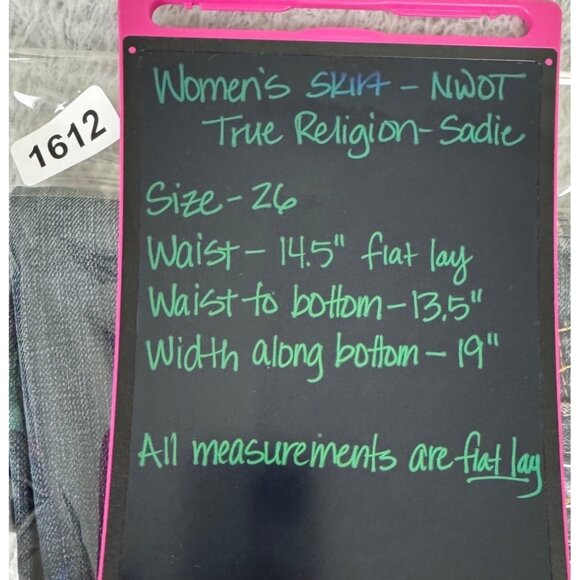 1612
Women's Skirt - NWOT
True Religion - Sadie
Size - 26
Waist - 14.5" flat lay
Waist to bottom - 13.5"
Width along bottom - 19"
All measurements are flat lay